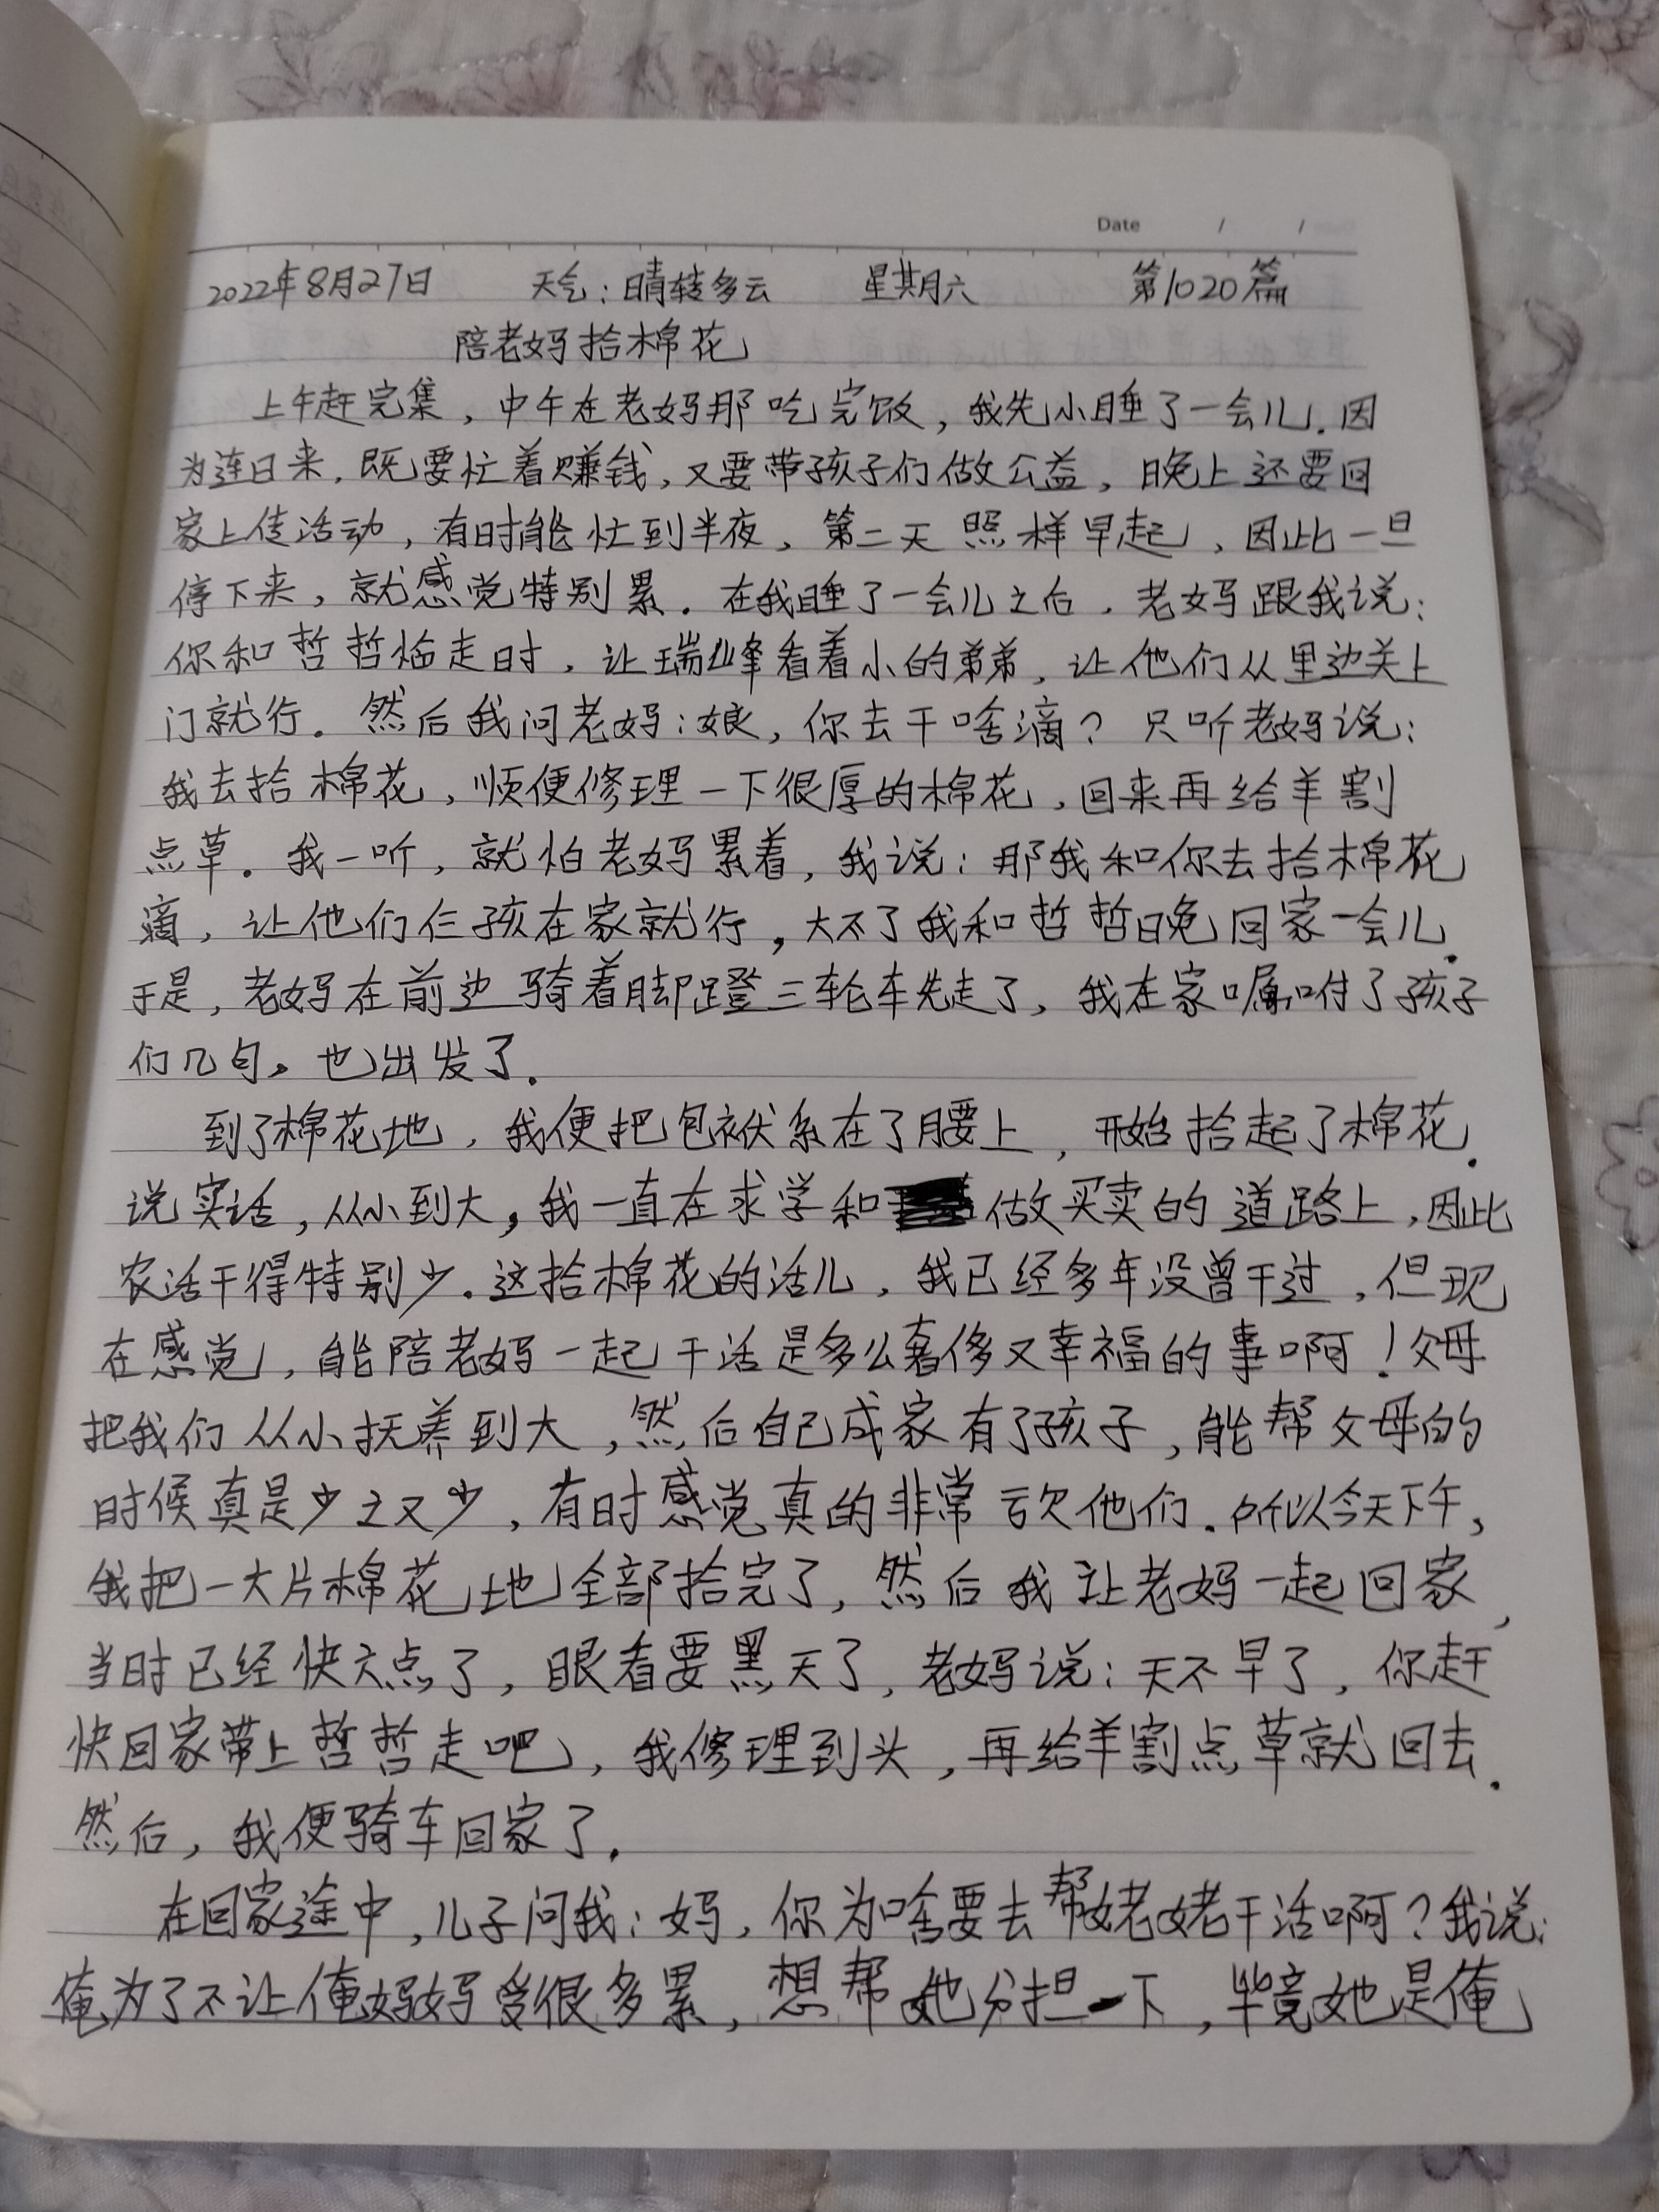 Date / /
2022年8月27日 天气：晴转多云 星期六 第1020篇
陪老妈拾棉花
上午赶完集，中午在老妈那吃完饭，我先小睡了一会儿.因
为连日来，既要忙着赚钱，又要带孩子们做公益，晚上还要回
家上传活动，有时能忙到半夜，第二天照样早起，因此一旦
停下来，就感觉特别累.在我睡了一会儿之后，老妈跟我说：
你和哲哲临走时，让瑞峰看着小的弟弟，让他们从里边关上
门就行.然后我问老妈：娘，你去干啥滴？只听老妈说：
我去拾棉花，顺便修理一下很厚的棉花，回来再给羊割
点草.我一听，就怕老妈累着，我说：那我和你去拾棉花
滴，让他们仨孩在家就行，大不了我和哲哲晚回家一会儿.
于是，老妈在前边骑着脚蹬三轮车先走了，我在家嘱咐了孩子
们几句。也出发了.
到了棉花地，我便把包袱系在了腰上，开始拾起了棉花.
说实话，从小到大，我一直在求学和做买卖的道路上，因此
农活干得特别少.这拾棉花的活儿，我已经多年没曾干过，但现
在感觉，能陪老妈一起干活是多么奢侈又幸福的事啊！父母
把我们从小抚养到大，然后自己成家有了孩子，能帮父母的
时候真是少之又少，有时感觉真的非常亏欠他们.所以今天下午，
我把一大片棉花地全部拾完了，然后我让老妈一起回家，
当时已经快六点了，眼看要黑天了，老妈说：天不早了，你赶
快回家带上哲哲走吧，我修理到头，再给羊割点草就回去.
然后，我便骑车回家了.
在回家途中，儿子问我：妈，你为啥要去帮姥姥干活啊？我说：
俺为了不让俺妈妈受很多累，想帮她分担一下，毕竟她是俺